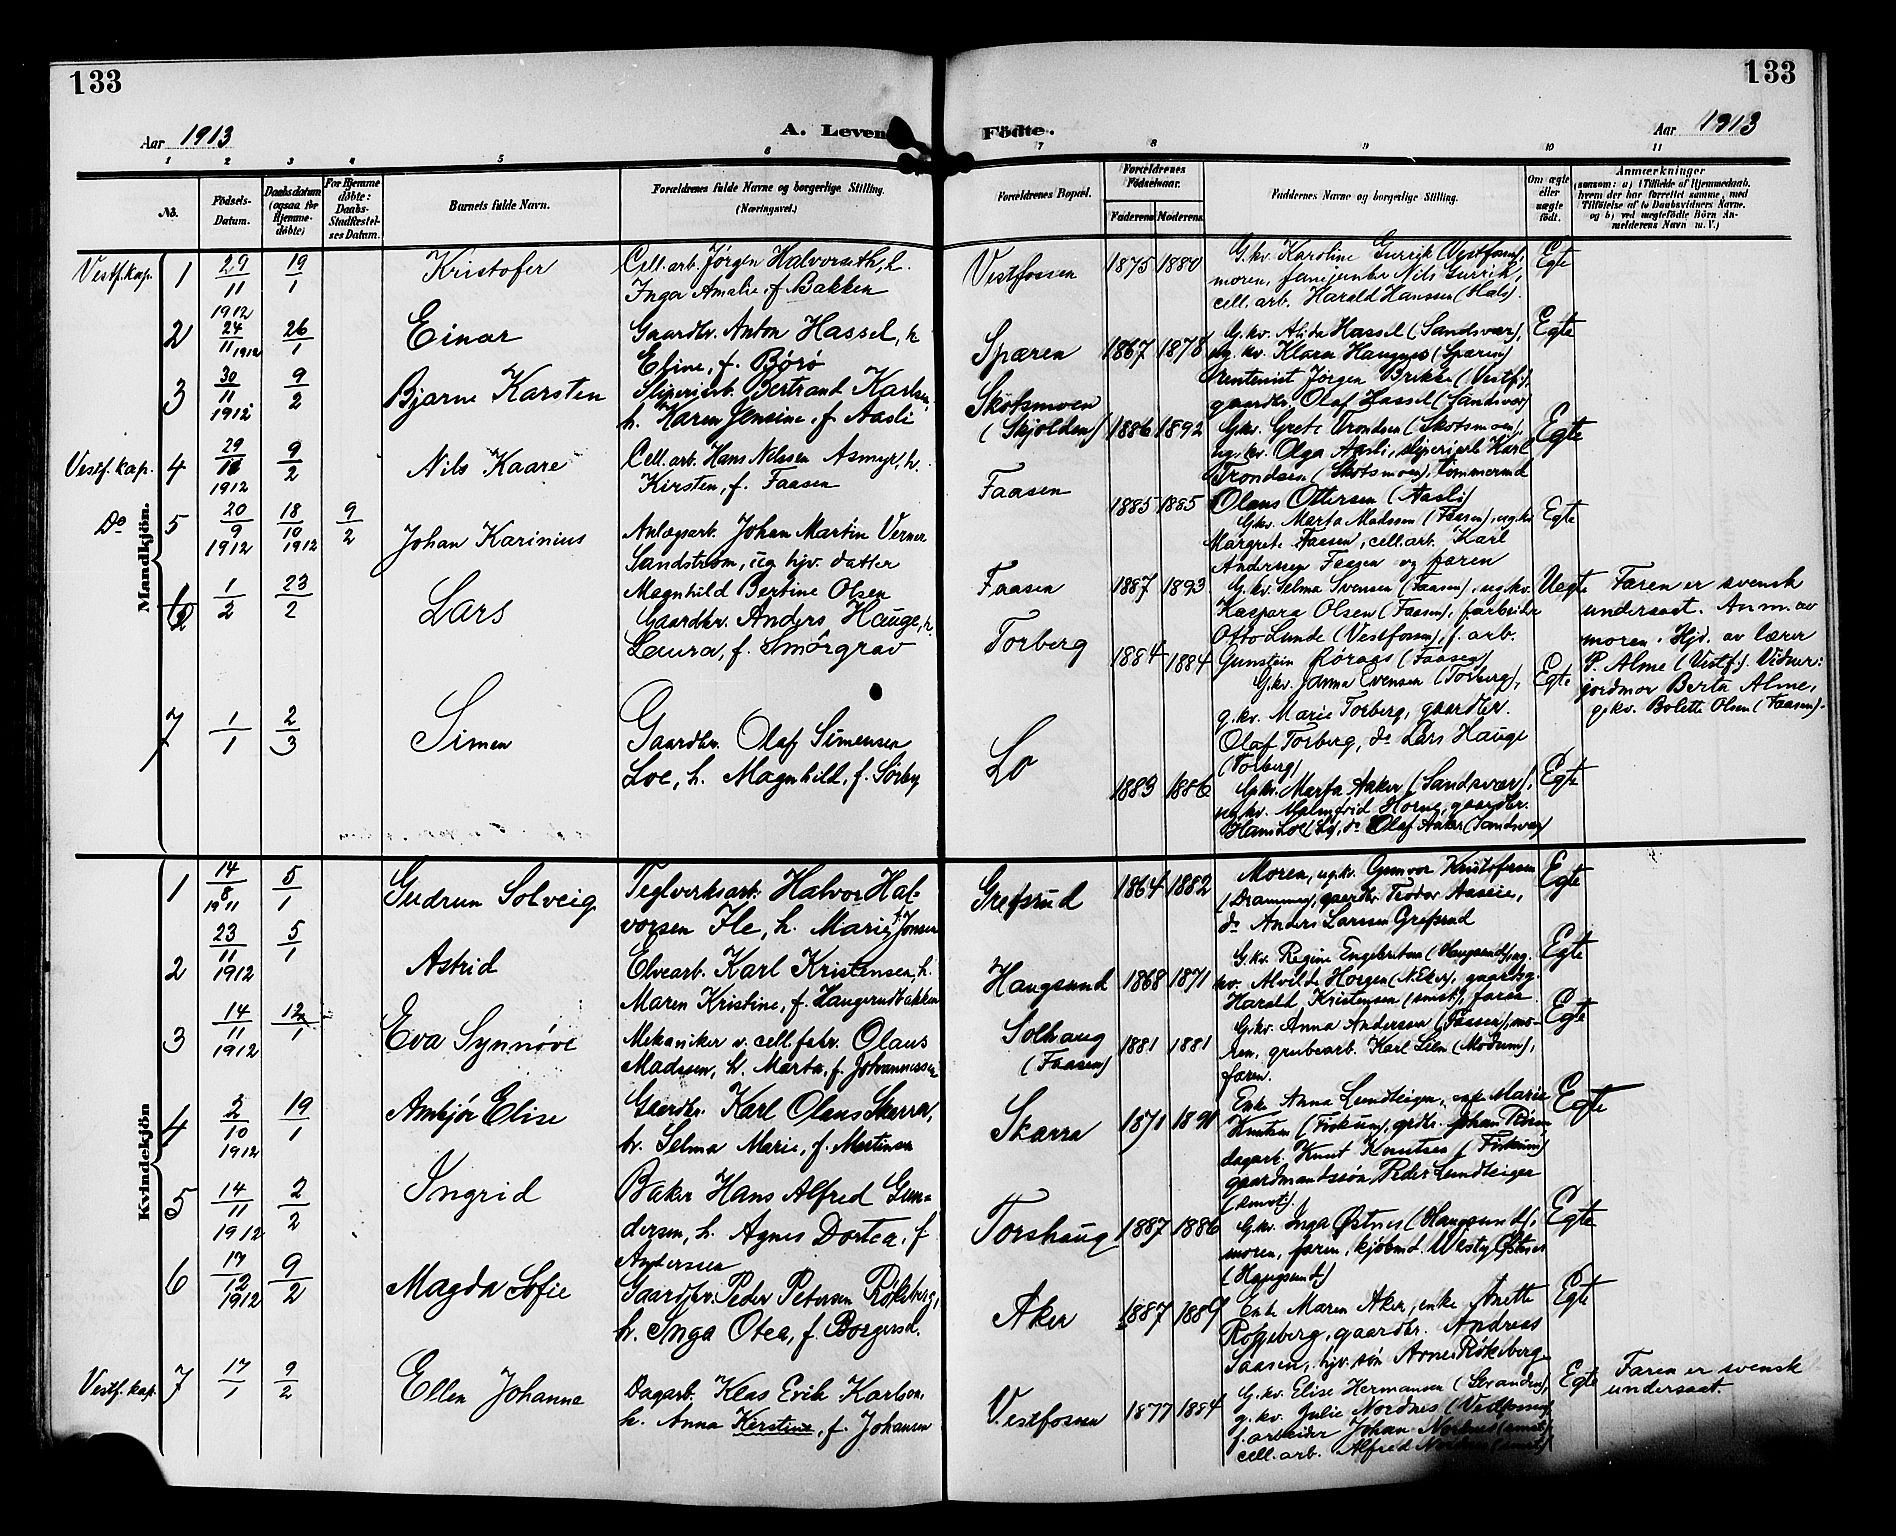 133
133
Aar 1913
A. Levende Födte.
Aar 1913
1 2 3 4 5 6 7 8 9 10 11
No.
Födsels-Datum.
Daabsdatum (ogsaa for Hjemme-döbte)
For Hjemme döbte: Daabs-Stadfæstel-ses Datum.
Barnets fulde Navn.
Forældrenes fulde Navne og borgerlige Stilling.
(Næringsvei.)
Forældrenes Bopæl.
Forældrenes Födselsaar.
Faderens Moderens
Faddernes Navne og borgerlige Stilling.
Om ægte eller uægte födt.
Anmærkninger
(saasom: a) i Tilfælde af Hjemmedaab,
hvem der har forrettet samme, med
Tilföielse af to Daabsvidners Navne.
og b) ved uægtefödte Börn An-
melderens Navn m. V.)
Mandkjön.
Vestf. kap. 1 29/11 1912 19/1 Kristofer
Cell.arb. Jörgen Halvorseth, h.
Inga Amalie, f. Bakken
Vestfossen 1875 1880
G.kv. Karoline Gurrik (Vestfossen),
moren, fanejunker Nils Gurrik,
cell. arb. Harald Hanssen (Hals).
Egte
2 24/11 1912 26/1 Einar
Gaardbr. Anton Hassel, h
Eline, f. Börö
Spæren 1867 1878
G.kv. Alida Hassel (Sandsvær),
ug. kv. Klara Haugnes (Spæren)
rentenist Jörgen Brekke (Vestf.),
gaardbr. Olaf Hassel (Sandsvær)
Egte
3 30/11 1912 9/2 Bjarne Karsten
Sliperiarb. Bertrand Karlsen,
h. Karen Jensine, f. Aasli
Skotsmoen
(Skjolden) 1886 1892
G.kv. Grete Trondsen (Skotsmoen),
ug. kv. Olga Aasli, sliperiarb. Karl
Trondsen (Skotsmoen), tömmermd
Olaus Ottersen (Aasli)
Egte
Vestf. kap. 4 29/12 1912 9/2 Nils Kaare
Cell.arb. Hans Nilssen Asmyr, h.
Kirsten, f. Faasen
Faasen 1885 1885
G.kv. Marta Madssen (Faasen), ug.kv.
Margrete Faasen, cell.arb. Karl
Andersen Faasen og faren
Egte
Do 5 20/9 1912 18/10 1912 9/2 Johan Karinius
Anlægsarb. Johan Martin Verner
Sandström, ug hjv. datter
Magnhild Bertine Olsen
Faasen 1887 1893
G.kv. Selma Svensen (Faasen), ug.kv.
Kaspara Olsen (Faasen), f.arbeider
Otto Lunde (Vestfossen), f. arb.
Gunstein Röraas (Faasen)
Uegte
Faren er svensk
undersaat. Anm. av
moren. Hjd. av lærer
P. Alme (Vestf.). Vidner:
jordmor Berta Alme,
g.kv. Bolette Olsen (Faasen).
6 1/2 23/2 Lars
Gaardbr. Anders Hauge, h.
Laura, f. Smörgrav
Torberg 1884 1884
G.kv. Anna Evensen (Torberg),
g.kv. Marie Torberg, gaardbr.
Olaf Torberg, do Lars Hauge
(Torberg)
Egte
7 1/1 2/3 Simen
Gaardbr. Olaf Simensen
Loe, h. Magnhild, f. Sörby
Lo 1883 1886
G.kv. Marta Aaker (Sandsvær),
ug.kv. Malmfrid Horne, gaardbr.
Hans Loe (Lo), do Olaf Aaker (Sandsvær)
Egte
Kvindekjön
1 14/8 1911 5/1 Gudrun Solveig
Teglverksarb. Halvor Hal-
vorsen Ile, h. Marie, f. Jonsen
Grefsrud 1864 1882
Moren, ug.kv. Gunvor Kristofersen
(Drammen), gaardbr. Teodor Aaseie,
do Anders Larssen Grefsrud
Egte
2 23/11 1912 5/1 Astrid
Elvearb. Karl Kristensen, h.
Maren Kristine, f. Haugsundbakken
Haugsund 1868 1871
G.kv. Regine Engebretsen (Haugsund), ug.
kv. Alvilde Horgen (N.Eker), gaardbg.
Harald Kristensen (smst), faren
Egte
3 14/11 1912 12/1 Eva Synnöve
Mekaniker v. cell.fabr. Olaus
Madssen, h. Marta, f. Johannessen
Solhaug
(Faasen) 1881 1881
G.kv. Anna Andersen (Faasen), mo-
ren, grubearb. Karl Lien (Modum),
faren.
Egte
4 2/10 1912 19/1 Ambjör Elise
Gaardbr. Karl Olaus Skarra,
h. Selma Marie, f. Martinsen
Skarra 1871 1891
Enke Anna Lundteigen, Marie
Knutsen (Fiskum), grdbr. Johan
dagarb. Knut Knutsen (Fiskum)
gaardmandssön Peder Lundteigen
(smst.)
Egte
5 14/11 1912 2/2 Ingrid
Baker Hans Alfred Gun-
dersen, h. Agnes Dortea, f
Andersen
Torshaug 1887 1886
G.kv. Inga Östnes (Haugsund),
moren, faren, kjöbmd. Westy Östnes
(Haugsund)
Egte
6 17/12 1912 9/2 Magda Sofie
Gaardbr. Peder Petersen Rökeberg,
h. Inga Otea, f. Borgersd.
Aker 1887 1889
Enke Maren Aker, enke Anette
Rökeberg, gaardbr. Andreas
Saasen, hjv. sön Arne Rökeberg
Egte
Vestf. kap. 7 17/1 9/2 Ellen Johanne
Dagarb. Klas Erik Karlson,
h. Anna Kerstine, f. Johansen
Vestfossen 1877 1884
G.kv. Elise Hermansen (Stranden),
g.kv. Julie Nordnes (Vestfossen),
f.arbeider Johan Nordnes (smst),
cell.arb. Alfred Nordnes (smst)
Egte
Faren er svensk
undersaat.